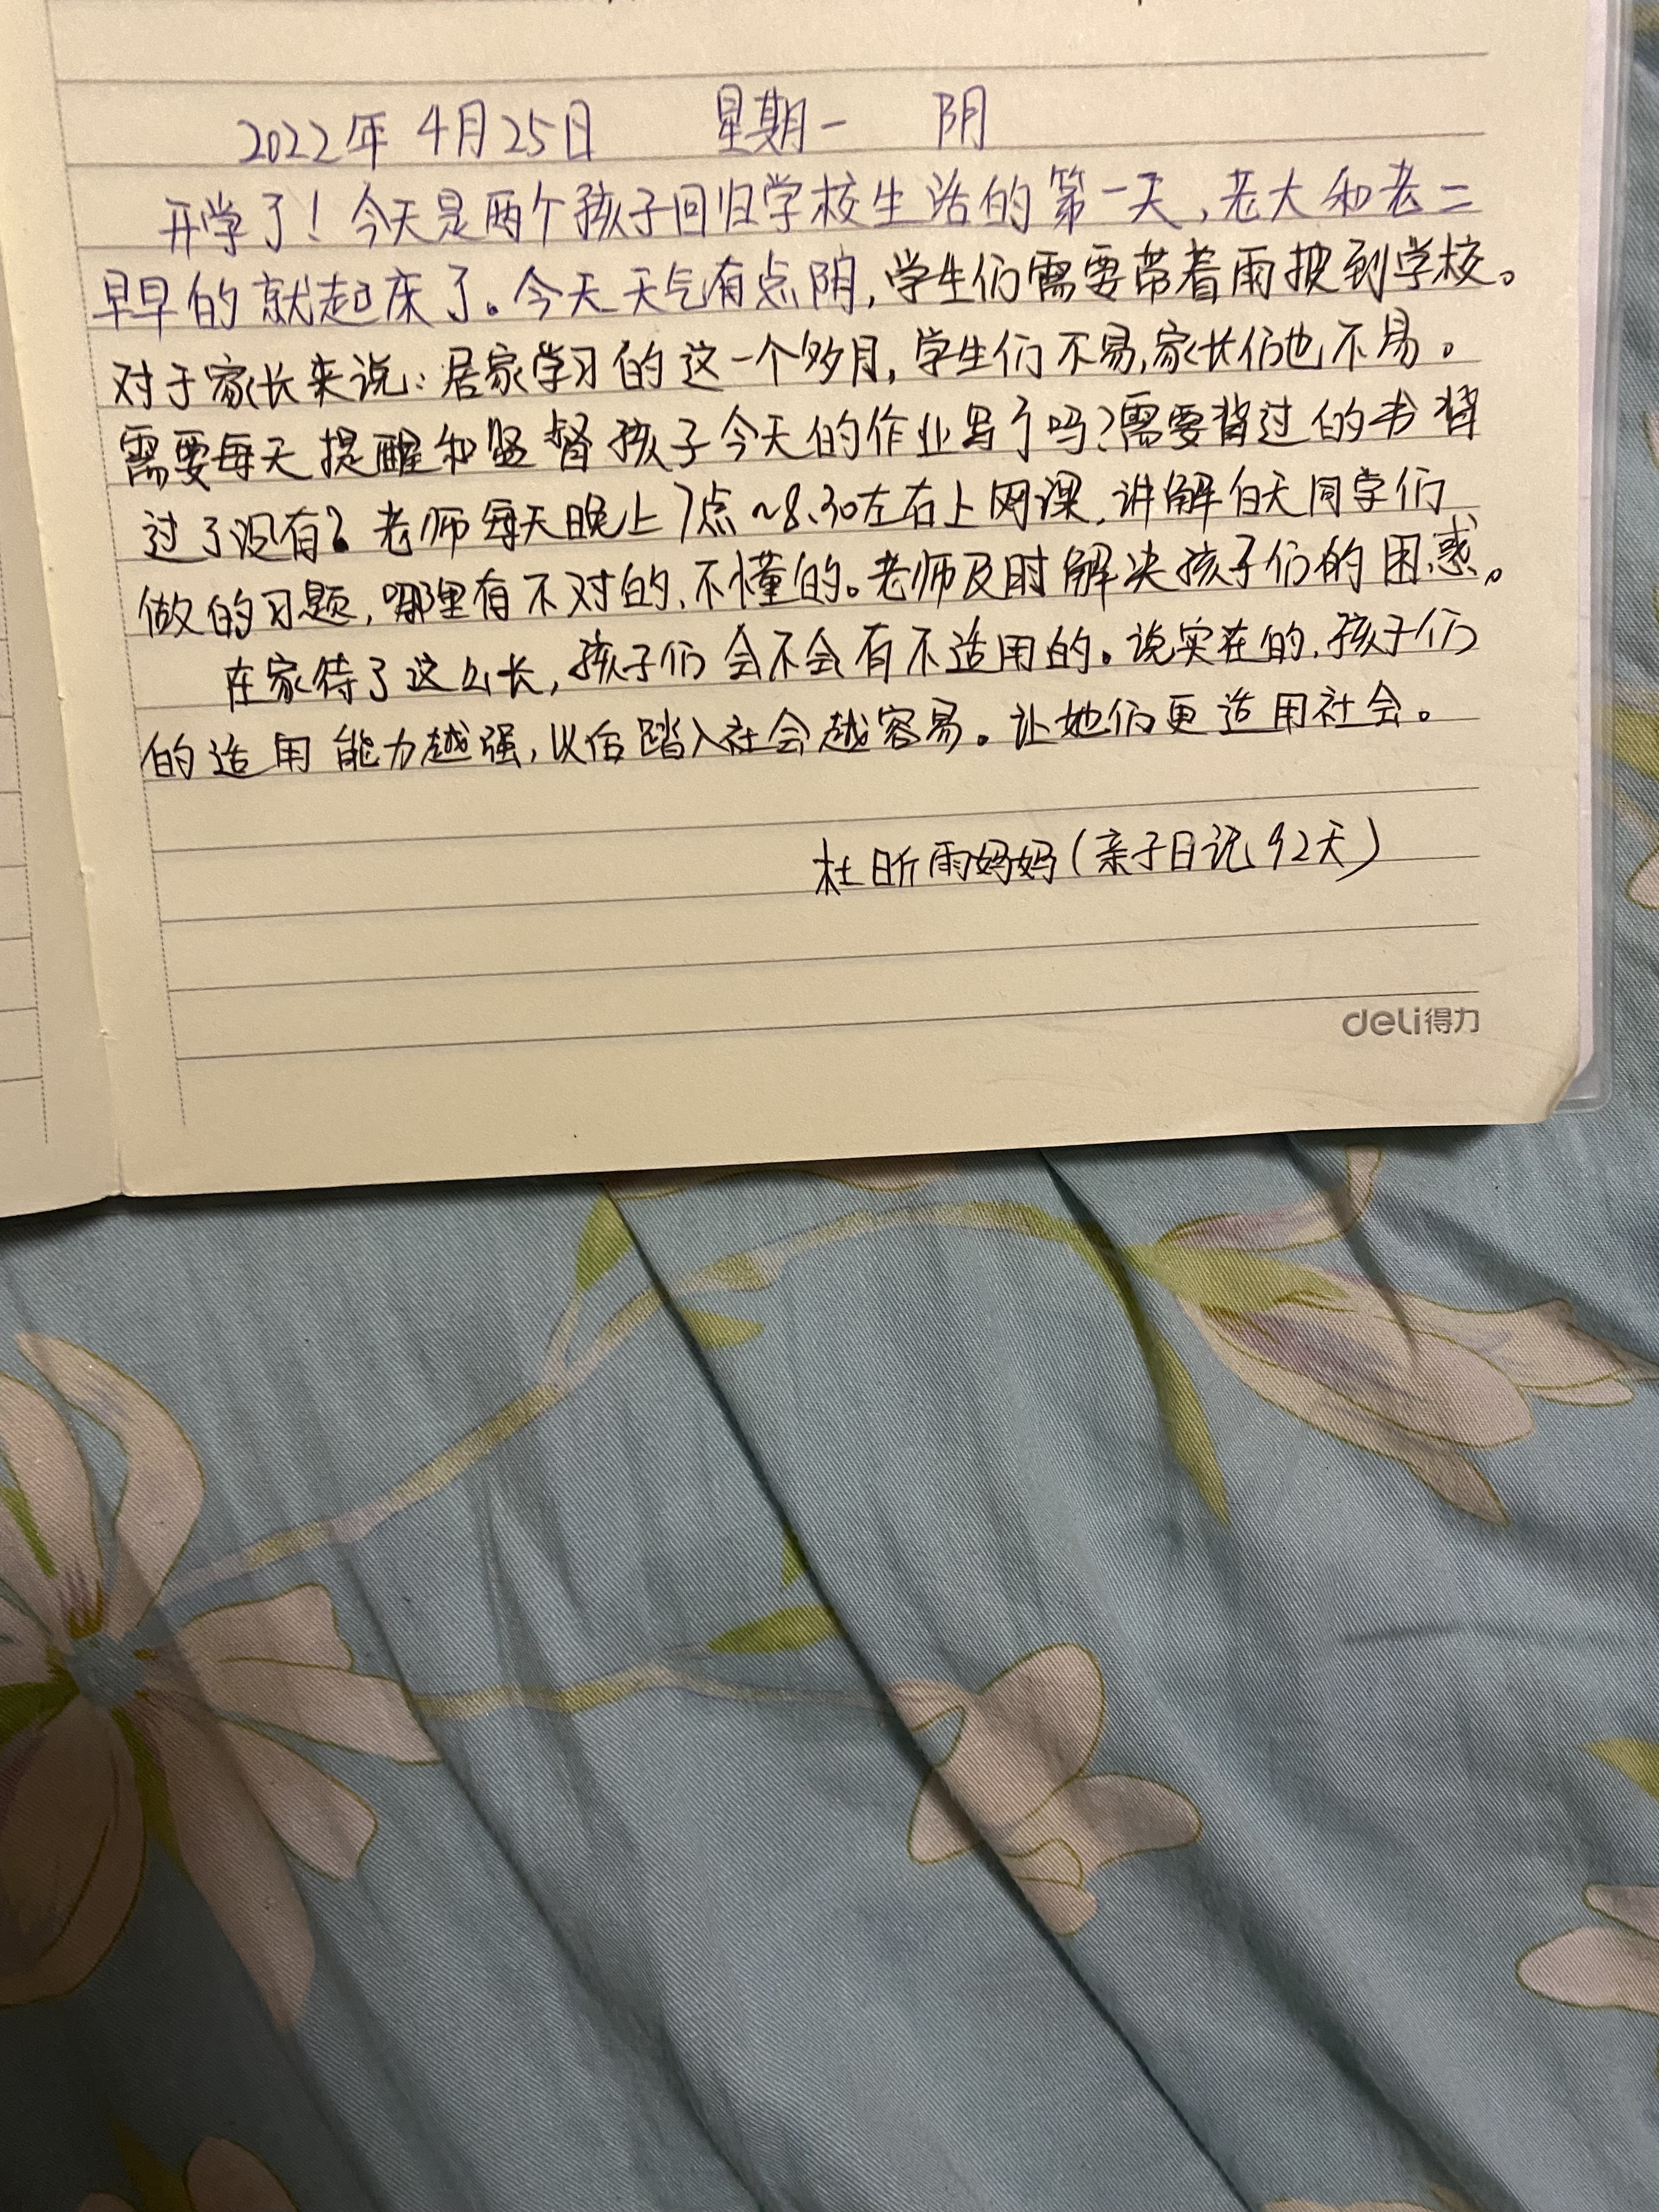 2022年 4月25日 星期一 阴
开学了！今天是两个孩子回归学校生活的第一天，老大和老二
早早的就起床了。今天天气有点阴，学生们需要带着雨披到学校。
对于家长来说：居家学习的这一个多月，学生们不易，家长们也不易。
需要每天提醒和监督孩子今天的作业写了吗？需要背过的书背
过了没有？老师每天晚上7点~8、30左右上网课，讲解白天同学们
做的习题，哪里有不对的、不懂的。老师及时解决孩子们的困惑。
在家待了这么长，孩子们会不会有不适用的。说实在的，孩子们
的适用能力越强，以后踏入社会越容易。让她们更适用社会。
杜昕雨妈妈（亲子日记92天）
deli得力